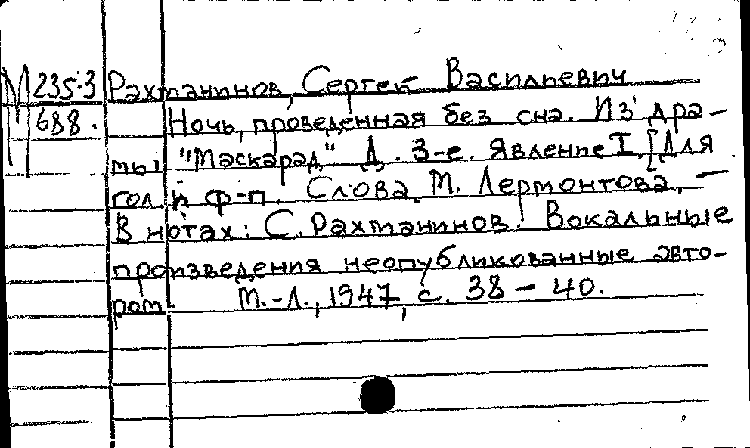 М 235-3 Рахманинов, Сергей Васильевич
688. Ночь, проведенная без сна. Из дра-
мы "Маскарад" Д. 3-е. Явление I. [Для
гол. и ф-п. Слова М. Лермонтова. –
В нотах: С. Рахманинов. Вокальные
произведения неопубликованные авто-
ром. М.-Л., 1947, с. 38 – 40.